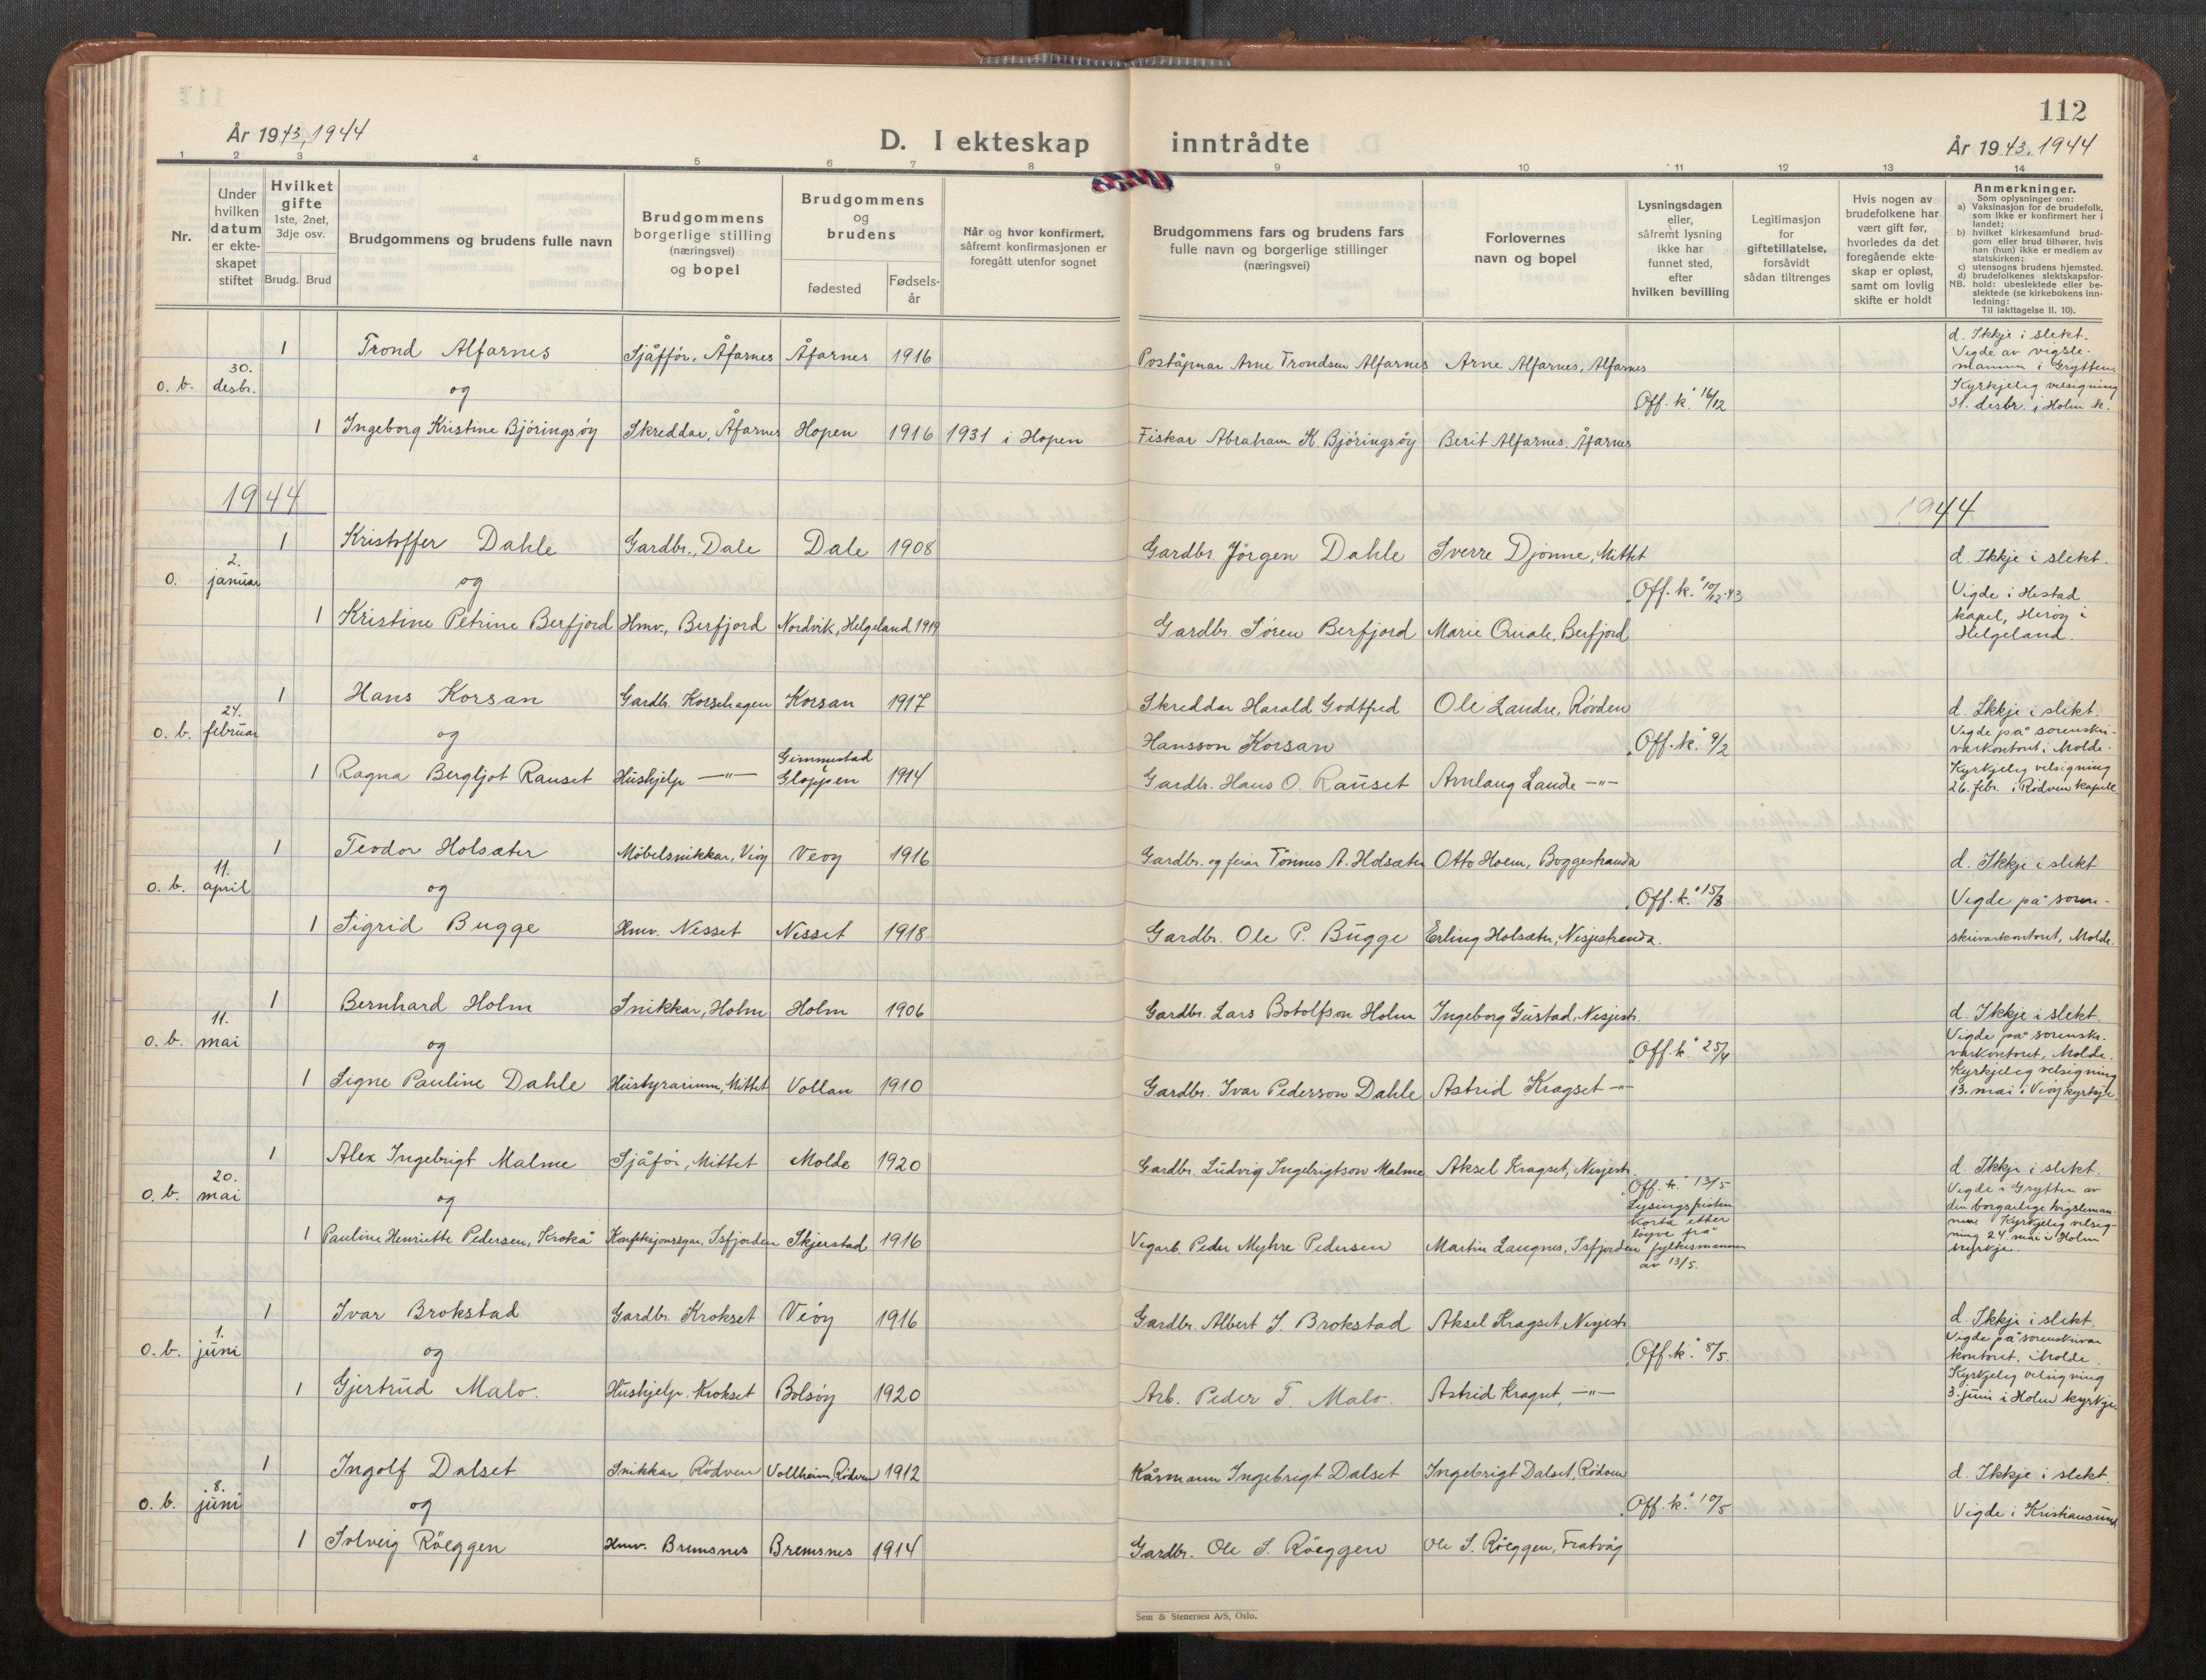 112
År 1943, 1944
D. I ekteskap inntrådte
År 1943, 1944
1 2 3 4 5 6 7 8 9 10 11 12 13 14
Nr.
Under hvilken datum er ekteskapet stiftet
Hvilket gifte
1ste, 2net, 3dje osv.
Brudg. Brud
Brudgommens og brudens fulle navn
Brudgommens borgerlige stilling (næringsvei) og bopel
Brudgommens og brudens
fødested
Fødsels-år
Når og hvor konfirmert, såfremt konfirmasjonen er foregått utenfor sognet
Brudgommens fars og brudens fars fulle navn og borgerlige stillinger (næringsvei)
Forlovernes navn og bopel
Lysningsdagen eller, såfremt lysning ikke har funnet sted, efter hvilken bevilling
Legitimasjon for giftetillatelse, forsåvidt sådan tiltrenges
Hvis nogen av brudefolkene har vært gift før, hvorledes da det foregående ekteskap er opløst, samt om lovlig skifte er holdt
Anmerkninger.
Som oplysninger om:
a) Vaksinasjon for de brudefolk, som ikke er konfirmert her i landet;
b) hvilket kirkesamfund brudgom eller brud tilhører, hvis han (hun) ikke er medlem av statskirken;
c) utensogns brudens hjemsted.
d) brudefolkenes slektskapsforhold: ubeslektede eller beslektede (se kirkebokens innledning:
NB.
Til iakttagelse II. 10).
1 Trond Alfarnes Sjåfför, Åfarnes Åfarnes 1916 Poståpnar Arne Trondsen Alfarnes Arne Alfarnes, Alfarnes
o. b. 30. desbr. og "Off. k." 16/12
1 Ingeborg Kristine Björingsöy Skreddar, Åfarnes Hopen 1916 1931 i Hopen Fiskar Abraham K. Björingsöy Berit Alfarnes, Åfarnes
d. Ikkje i slekt.
Vigde av vigsle-
mannen i Grytten.
Kyrkjeleg velsigning
31. desbr. i Holm k.
1944 1944
1 Kristoffer Dahle Gardbr., Dale Dale 1908 Gardbr. Jörgen Dahle Sverre Djönne, Mittet
o. 2. januar og "Off. k." 10/12-43
1 Kristine Petrine Berfjord Hmv., Berfjord Nordvik, Helgeland 1919 Gardbr. Sören Berfjord Marie Quale, Berfjord
d. Ikkje i slekt.
Vigde i Hestad
kapel, Heröy i
Helgeland.
1 Hans Korsan Gardbr. Korshagen Korsan 1917 Skreddar Harald Godtfred Ole Landre, Rövden
o. b. 24. februar og Hansson Korsan "Off. k." 9/2
1 Ragna Bergljot Rauset Hushjelp —"— Gimmestad i Gloppen 1914 Gardbr. Hans O. Rauset Arnlaug Lande —"—
d. Ikkje i slekt.
Vigde på sorenskri-
varkontoret i Molde.
Kyrkjeleg velsigning
26. febr. i Rödven kapell.
1 Teodor Holsæter Möbelsnikkar, Veöy Veöy 1916 Gardbr. og feiar Tönnes A. Holsæter Otto Hoem, Boggestranda
o. b. 11. april og "Off. k." 15/3
1 Sigrid Bugge Hmv. Nesset Nesset 1918 Gardbr. Ole P. Bugge Erling Holsæter, Nesjestranda.
d. Ikkje i slekt
Vigde på soren-
skrivarkontoret, Molde.
1 Bernhard Holm Snikkar, Holm Holm 1906 Gardbr. Lars Botolfson Holm Ingeborg Gustad, Nesjestr.
o. b. 11. mai og "Off. k." 25/4
1 Signe Pauline Dahle Hustyrarinne, Mittet Vollan 1910 Gardbr. Ivar Pederson Dahle Astrid Kragset —"—
d. Ikkje i slekt.
Vigde på sorenskri-
varkontoret, Molde.
Kyrkjeleg velsigning
13. mai i Veöy kyrkje.
1 Alex Ingebrigt Malme Sjåför, Mittet Molde 1920 Gardbr. Ludvig Ingebrigtson Malme Aksel Kragset, Nesjestr.
o. b. 20. mai og "Off. k." 13/5
Lysingsfristen
korta etter
löyve frå
fylkesmannen
av 13/5.
1 Pauline Henriette Pedersen, Krokå Konfeksjonssyar, Isfjorden Skjerstad 1916 Vegarb. Peder Myhre Pedersen Martin Laugnes, Isfjorden
d. Ikkje i slekt.
Vigde i Grytten av
den borgarlige vigsleman-
nen. Kyrkjeleg velsig-
ning 24. mai i Holm
kyrkje.
1 Ivar Brokstad Gardbr. Krokset Veöy 1916 Gardbr. Albert I. Brokstad Aksel Kragset, Nesjestr.
o. b. 1. juni og "Off. k." 8/5.
1 Gjertrud Malo. Hushjelp, Krokset Bolsöy 1920 Arb. Peder T. Malo. Astrid Kragset, —"—
d. Ikkje i slekt.
Vigde på sorenskrivar
kontoret, i Molde.
Kyrkjeleg velsigning
3. juni i Holm kyrkje.
1 Ingolf Dalset Snikkar, Rödven Vollheim, Rödven 1912 Kårmann Ingebrigt Dalset Ingebrigt Dalset, Rödven
o. b. 8. juni og "Off. k." 10/5
1 Solveig Röeggen Hmv. Bremsnes Bremsnes 1914 Gardbr. Ole S. Röeggen Ole S. Röeggen, Fratvåg
d. Ikkje i slekt.
Vigde i Kristiansund
Sem & Stenersen A/S, Oslo.